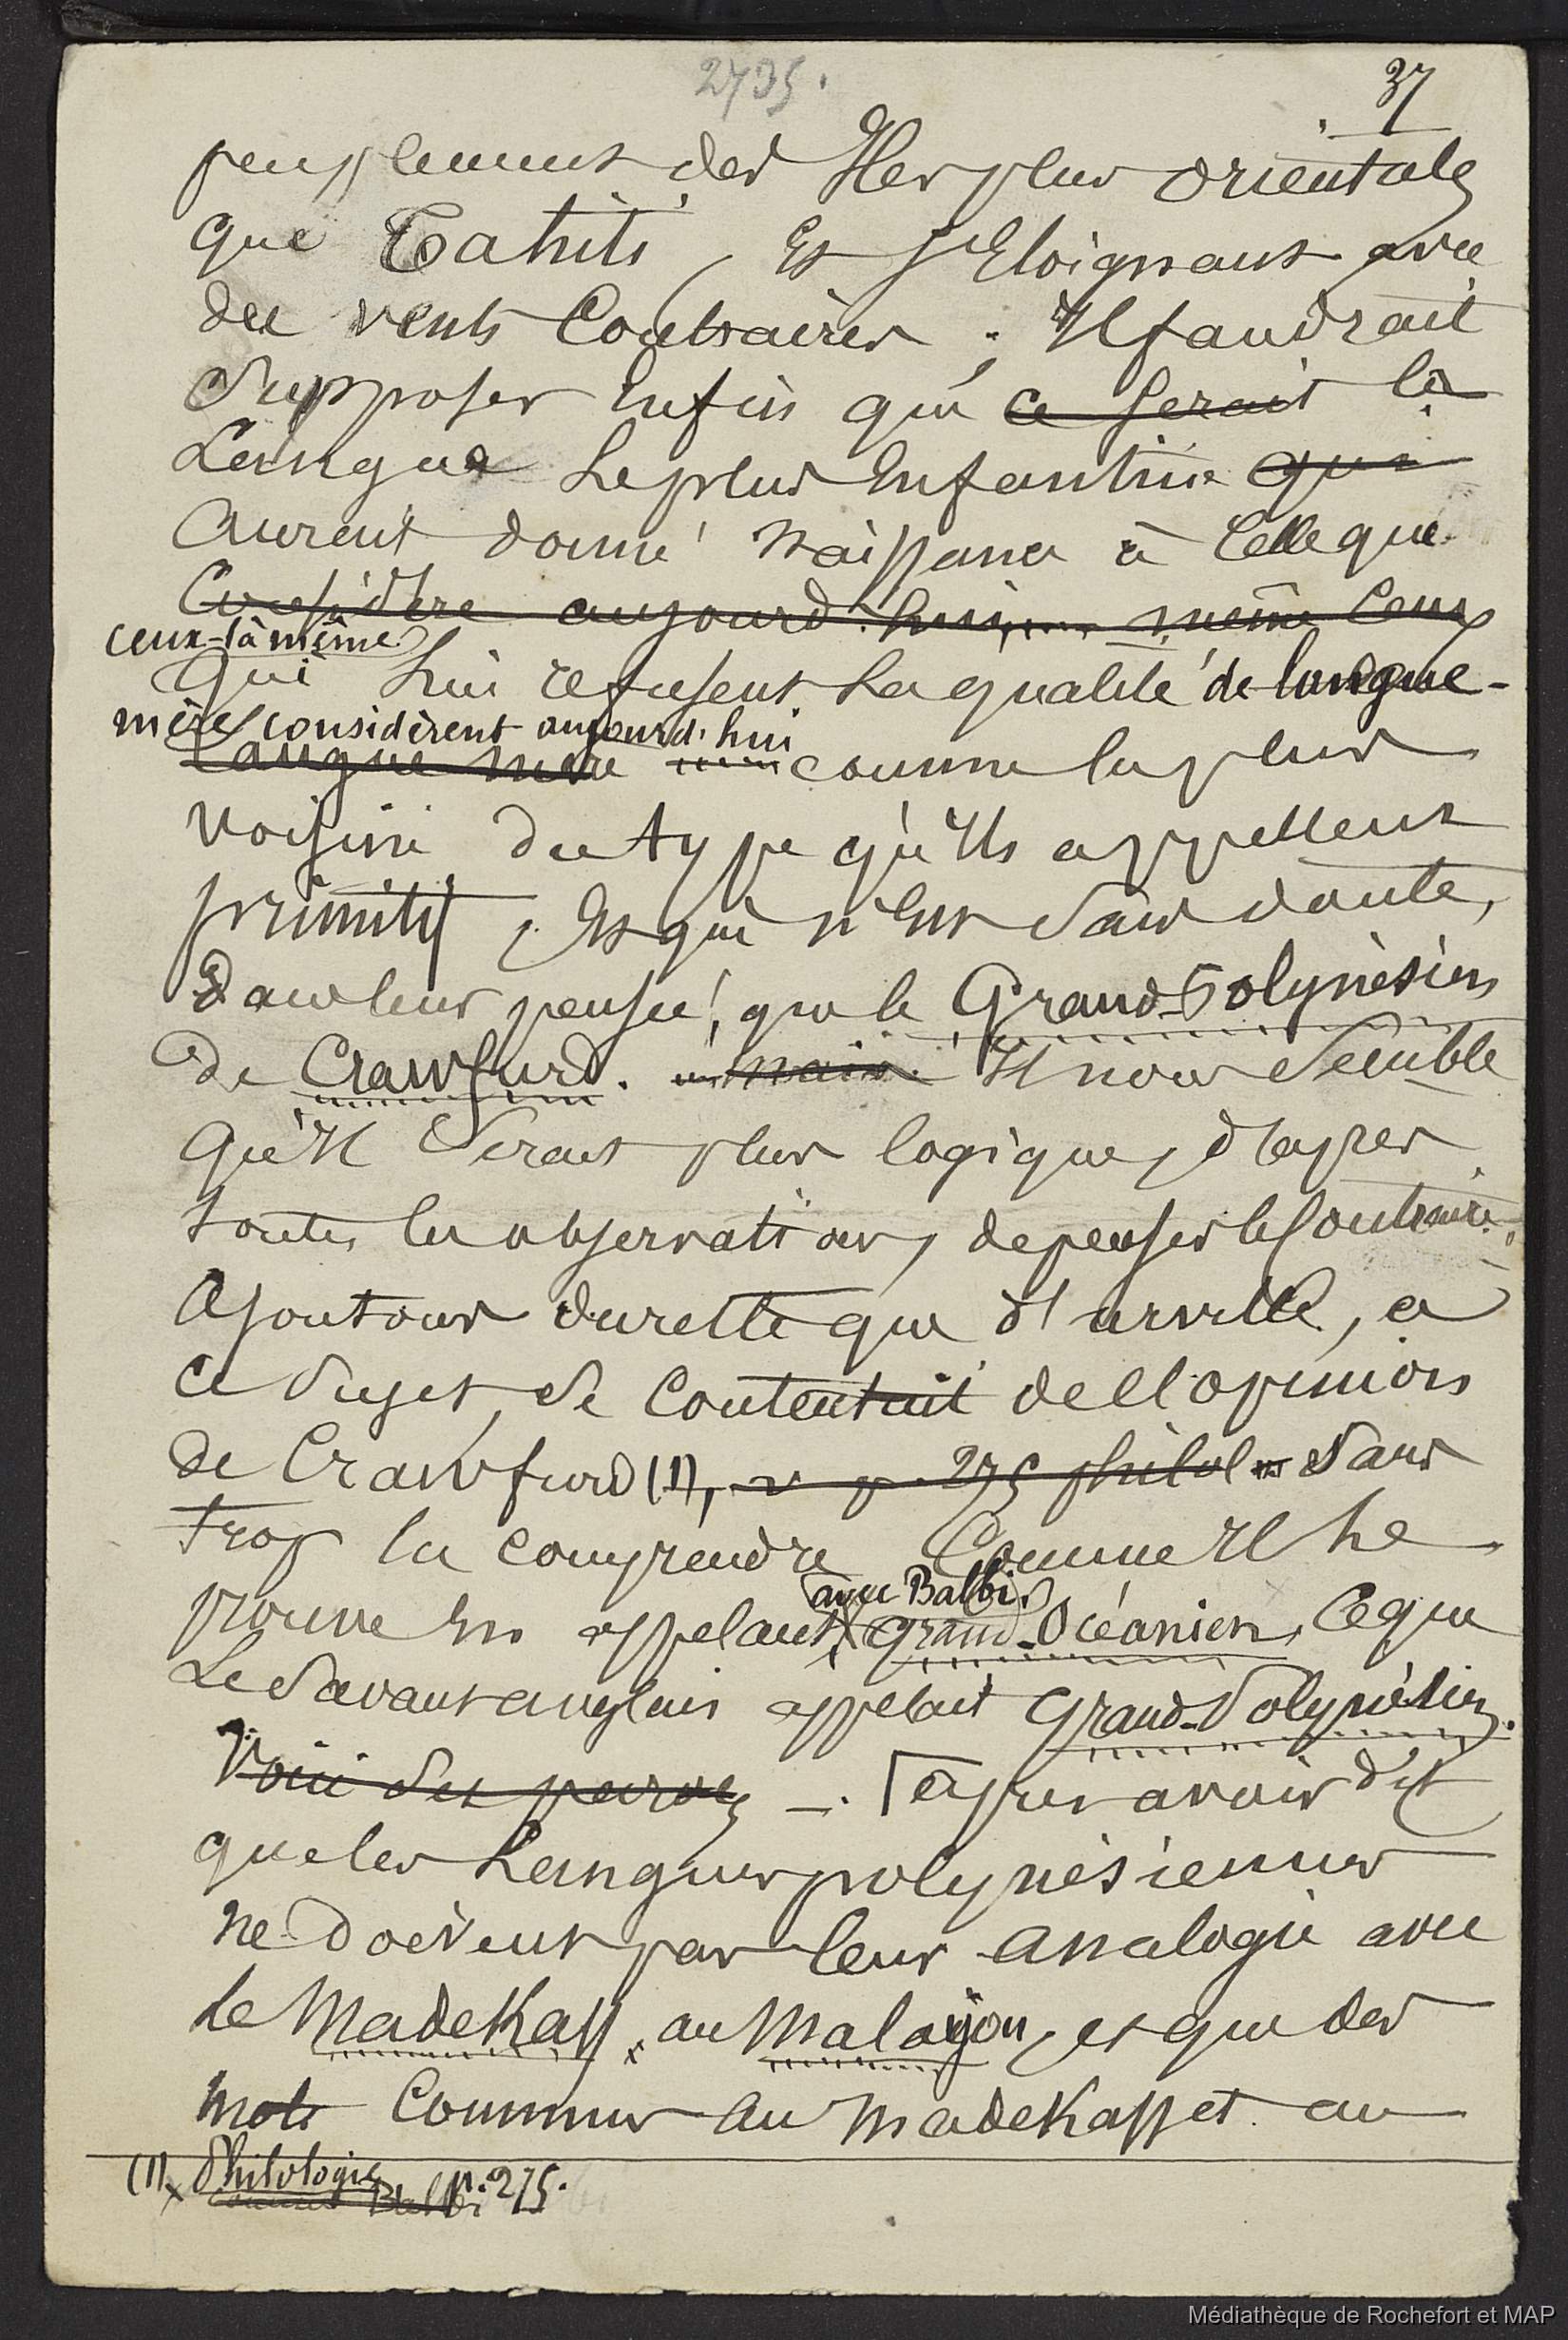 2735.
37
peuplement des Iles plus orientales
que Tahiti, et s'éloignant avec
des vents contraires ; Il faudrait
supposer enfin que ce serait la
Langue la plus enfantine qui
aurait donné naissance à celle que
considère aujourd'hui même ceux
ceux-là même
qui lui refusent la qualité de langue-
mère considèrent aujourd'hui
langue mère comme la plus
voisine du type qu'ils appellent
primitif, et qui n'est sans doute,
dans leur pensée, que le Grand-Polynésien
de Crawfurd. mais Il nous semble
qu'il serait plus logique, d'après
toutes les observations, de penser le contraire.
Ajoutons du reste que d'urville, à
ce sujet, se contentait de l'opinion
de Crawfurd (1), v p. 275 philol sans
trop la comprendre comme il le
avec Balbi
prouve en appelant grand-Océanien, ce que
Le Savant anglais appelait grand-Polynésien.
Voici ses paroles _. [après avoir dit
que les Langues polynésiennes
ne doivent pas leur analogie avec
le Madekass, au Malayou, et que des
mots communs au Madekass et au
(1) x Philologie p. 275.
Balbi
Médiathèque de Rochefort et MAP